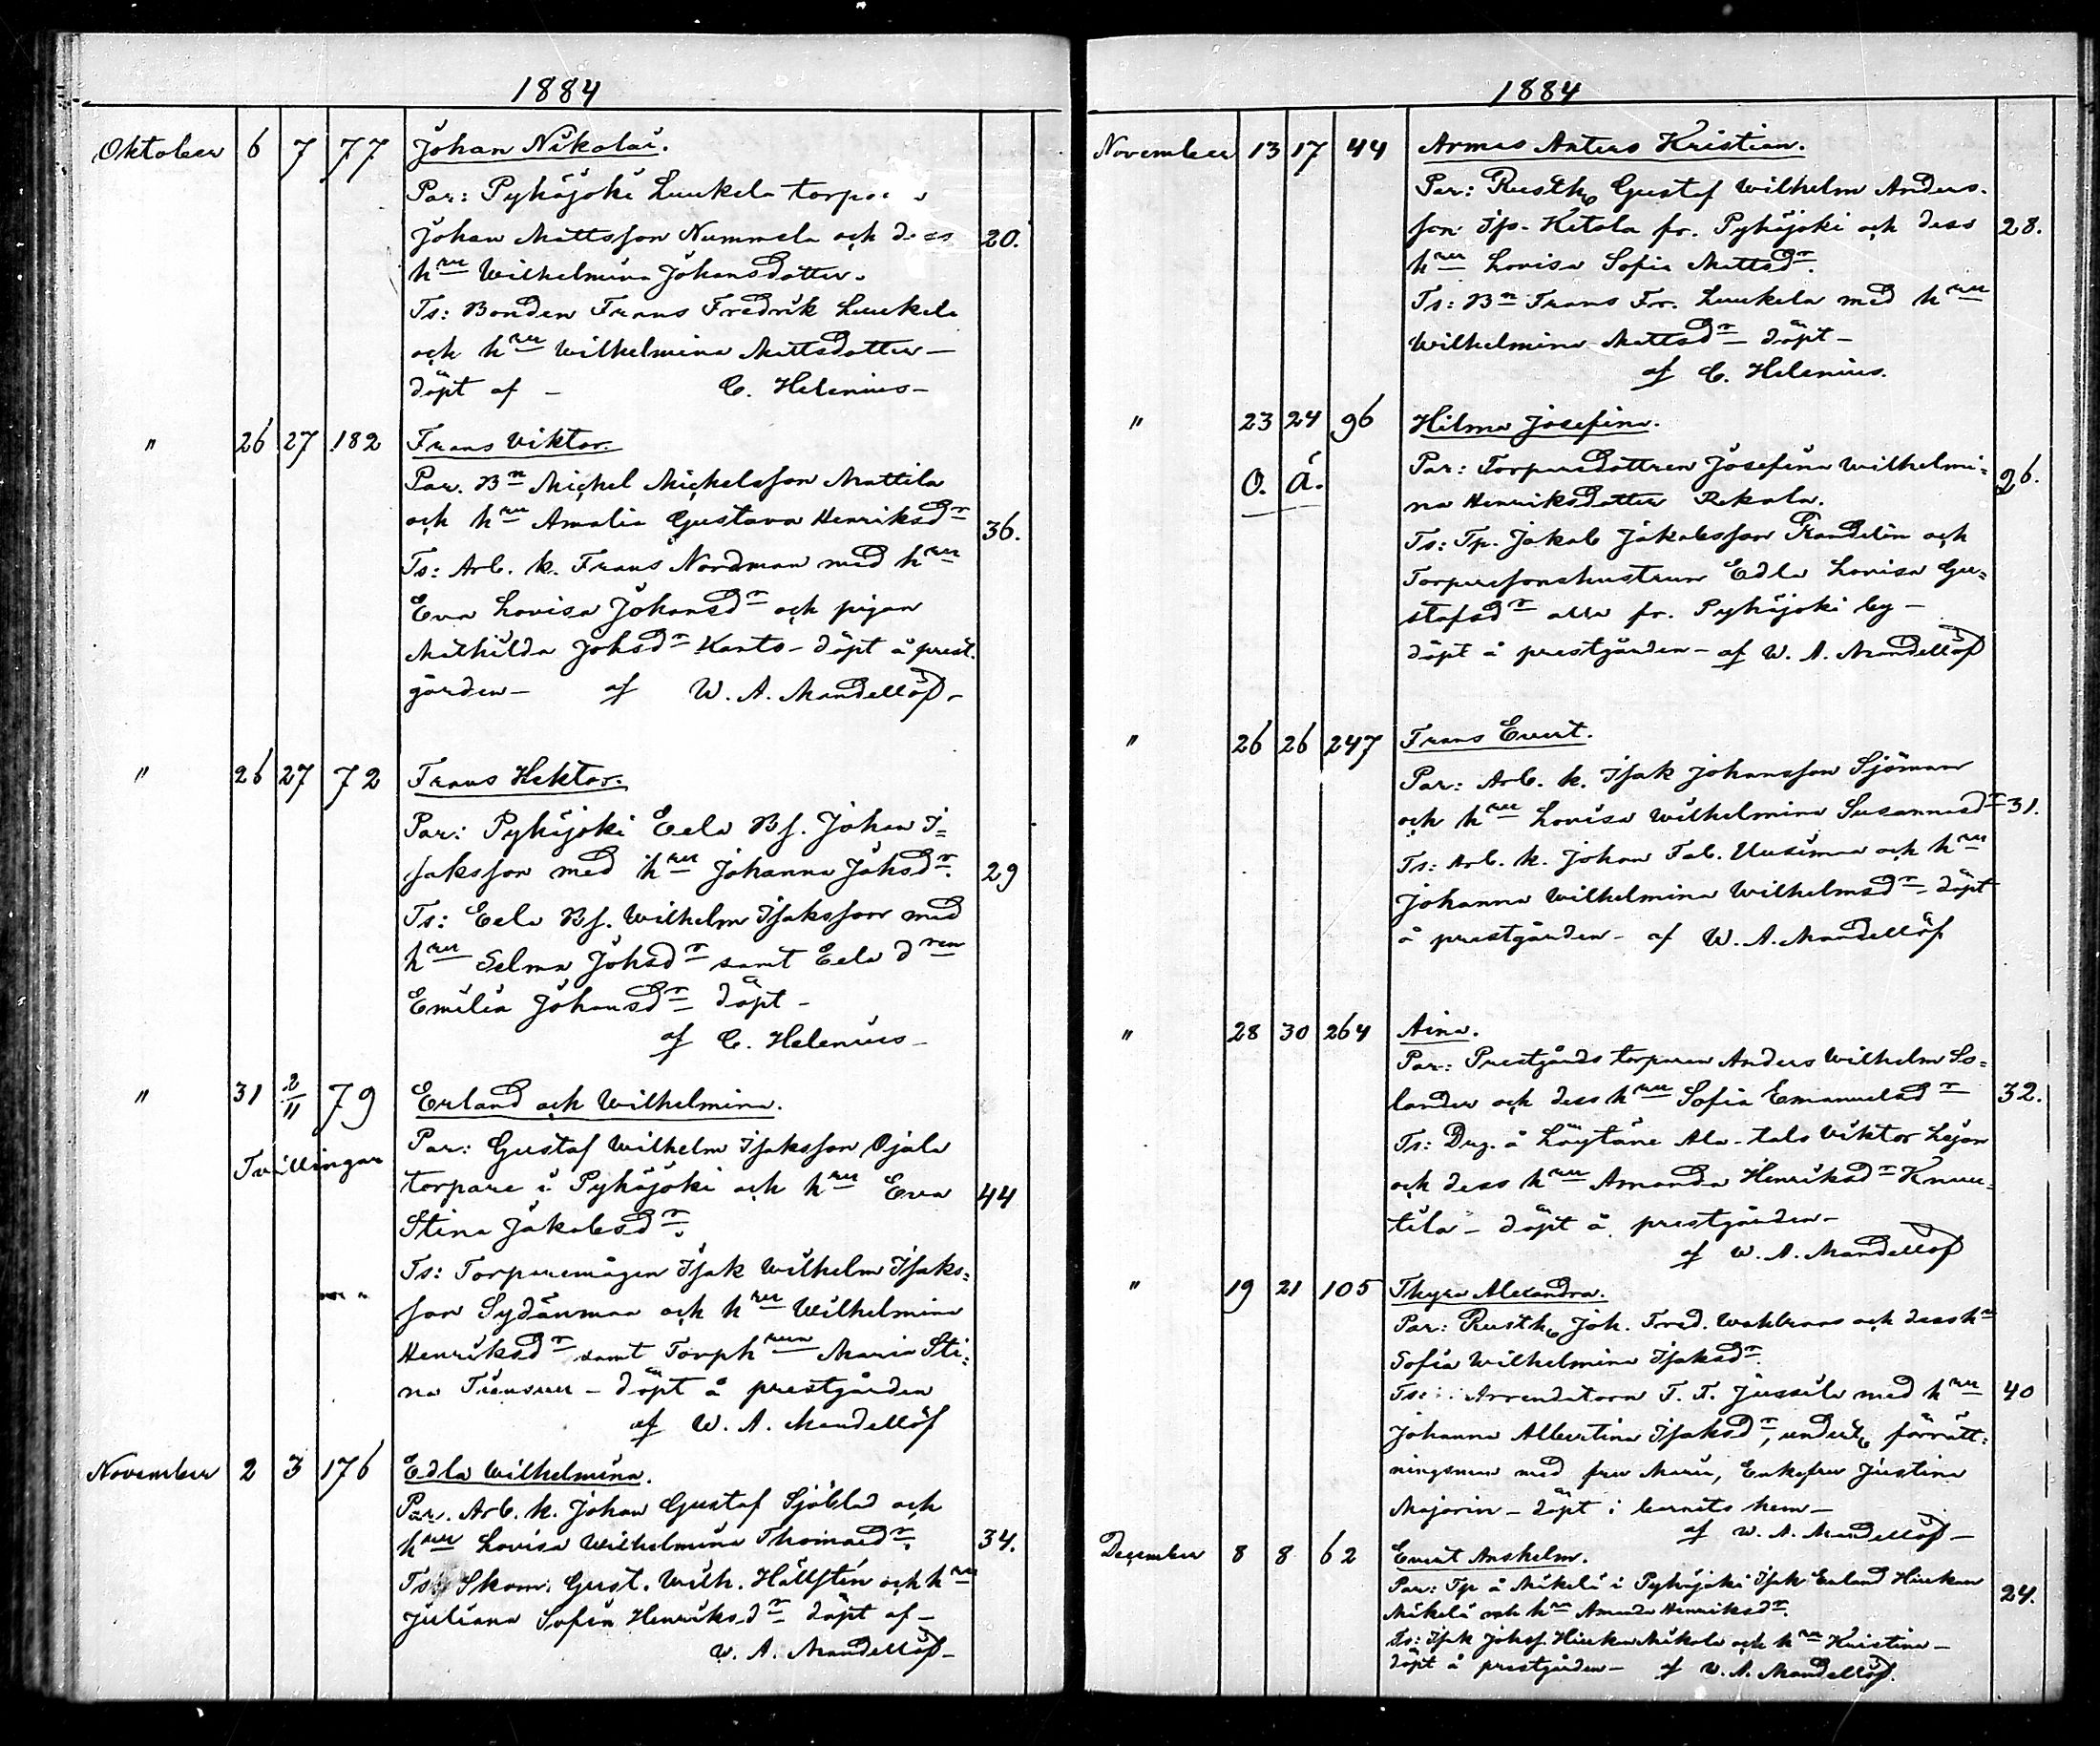 1884
Oktober 6 7 77 Johan Nikolai.
Par: Pyhäjoki Luukela
Johan Mattsson Nummela och dess 20.
hru Wilhelmina Johansdotter.
Ts: Bonden Frans Fredrik Luukela
och hru Wilhelmina Mattsdotter –
döpt af – C. Helenius –
" 26 27 182 Frans Viktor.
Par. Bn Michel Michelsson Mattila
och hru Amalia Gustava Henriksdr 36.
Ts: Arb. k. Frans Nordman med hru
Eva Lovisa Johansdr och pigan
Mathilda Johsdr Kanto – döpt å prest-
gården – af W. A. Mandellöf –
" 26 27 72 Frans Hektor.
Par: Pyhäjoki Eela Bs. Johan I=
saksson med hru Johanna Johsdr. 29
Ts: Eela Bs. Wilhelm Isaksson med
hru Selma Johsdr samt Eela dren
Emilia Johansdr döpt –
af C. Helenius –
" 31 2/11 79 Erland och Wilhelmina.
Tvillingar
Par: Gustaf Wilhelm Isaksson Ojala
torpare i Pyhäjoki och hru Eva 44
Stina Jakobsdr.
Ts: Torparemågen Isak Wilhelm Isaks=
son Sydänmaa och hru Wilhelmina
Henriksdr samt Torphrun Maria Sti=
na – döpt å prestgården
af W. A. Mandellöf
November 2 3 176 Edla Wilhelmina.
Par. Arb. k. Johan Gustaf Sjöblad och
hru Lovisa Wilhelmina Thomasdr. 34.
Ts: Skom. Gust. Wilh. Hällsten och hru
Juliana Sofia Henriksdr döpt af –
W. A. Mandellöf –
1884
November 13 17 44 Armas Anters Kristian.
Par: Rusth. Gustaf Wilhelm Anders-
son Ketola fr. Pyhäjoki och dess 28.
hru Lovisa Sofia Mattsdr.
Ts: Bn Frans Fr. Luukela med hru
Wilhelmina Mattsdr döpt –
af C. Helenius.
" 23 24 96 Hilma Josefina.
O. Ä.
Par: Torparedottren Josefina Wilhelmi= 26.
na Henriksdotter Rekola.
Ts: Tp. Jakob Jakobsson Randelin och
Torparesonshustrun Edla Lovisa Gu=
stafsdr alla fr. Pyhäjoki by –
döpt å prestgården – af W. A. Mandellöf
" 26 26 247 Frans Evert.
Par: Arb. k. Isak Johansson Sjöman
och hru Lovisa Wilhelmina Susannasdr 31.
Ts: Arb. k. Johan Fab. Uusimaa och hru
Johanna Wilhelmina Wilhelmsdr döpt
å prestgården – af W. A. Mandellöf
" 28 30 264 Aina.
Par: Prestgårds torparen Anders Wilhelm So=
lander och dess hru Sofia Emanuelsdr 32.
Ts: Drg. å Löytäne Ala-talo Viktor Lejon
och dess hru Amanda Henriksdr Knuu=
tila – döpt å prestgården –
af W. A. Mandellöf
" 19 21 105 Thyra Alexandra.
Par: Rusth. Joh. Fred. Wahlroos och dess hru
Sofia Wilhelmina Isaksdr.
Ts: Arrendatorn F. F. Jussila med hru 40
Johanna Albertina Isaksdr, undert. förrätt=
ningsman med fru Maria, Enkefru Justina
Majorin – döpt i barnets hem –
af W. A. Mandellöf –
December 8 8 62 Evert Anshelm.
Par: Tp å Mikelä i Pyhäjoki Isak Erland
Mikelä och hru Amanda Henriksdr. 24.
Ts: Isak Johss. och hru Kristina –
döpt å prestgården – af W. A. Mandellöf.